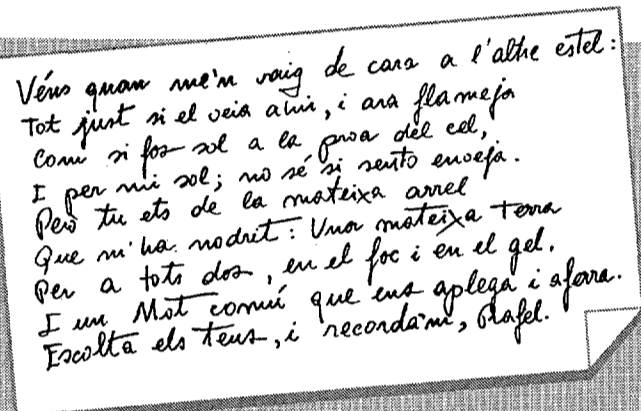 Véns quan me'n vaig de cara a l'altre estel:
Tot just si el veia ahir, i ara flameja
Com si fos sol a la proa del cel,
I per mi sol; no sé si sento enveja.
Però tu ets de la mateixa arrel
Que m'ha nodrit: Una mateixa terra
Per a tots dos, en el foc i en el gel.
I un Mot comú que ens aplega i aferra.
Escolta els teus, i recorda'm, Rafel.